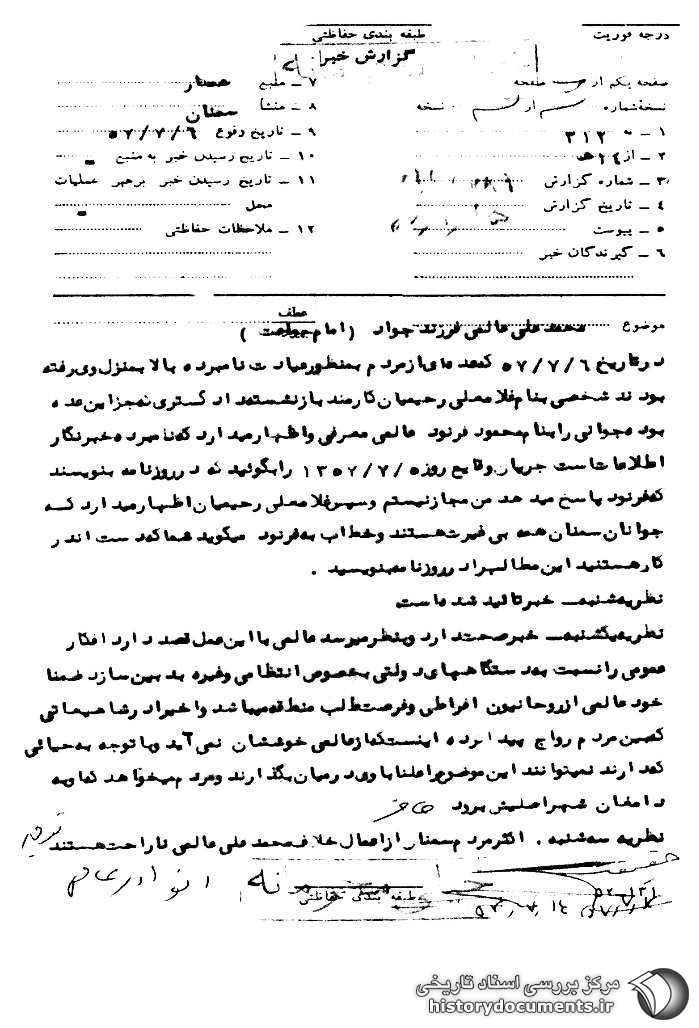 درجه فوریت
طبقه بندی حفاظتی
گزارش خبر
صفحه یکم از صفحه
نسخه‌شماره از نسخه
۱ ـ به ۳۱۲
۲ ـ از ۱۴ ه‍
۳ ـ شماره گزارش
۴ ـ تاریخ گزارش
۵ ـ پیوست
۶ ـ گیرندگان خبر
۷ ـ منبع
۸ ـ منشأ سمنان
۹ ـ تاریخ وقوع ۵۷/۷/۶
۱۰ ـ تاریخ رسیدن خبر به منبع
۱۱ ـ تاریخ رسیدن خبر برهبر عملیات
محل
۱۲ ـ ملاحظات حفاظتی
عطف
موضوع محمد علی عالمی فرزند جواد (امام جماعت)
در تاریخ ۵۷/۷/۶ که عده‌ای از مردم بمنظور عیادت نامبرده بالا بمنزل وی رفته
بودند شخصی بنام غلامعلی رحیمیان کارمند بازنشسته دادگستری که جز این عده
بوده جوانی را بنام محمود فرنود به عالمی معرفی و اظهار میدارد که نامبرده خبرنگار
اطلاعات است جریان وقایع روز ۱۳۵۷/۷/۵ را بگوئید که در روزنامه بنویسند
که فرنود پاسخ میدهد من مجاز نیستم و سپس غلامعلی رحیمیان اظهار میدارد که
جوانان سمنان همه بی غیرت هستند و خطاب به فرنود میگوید شما که دست اندر
کار هستنید این مطالب را در روزنامه بنویسید .
نظریه شنبه ـ خبر تائید شده است
نظریه یکشنبه ـ خبر صحت دارد و بنظر میرسد عالمی با این عمل قصد دارد افکار
عمومی را نسبت به دستگاههای دولتی بخصوص انتظامی و غیره بدبین سازد ضمنا
خود عالمی از روحانیون افراطی و فرصت طلب منطقه میباشد و اخیرا در شایعاتی
که بین مردم رواج پیدا کرده اینست که از عالمی خوششان نمی‌آید و با توجه به حیائی
که دارند نمیتوانند این موضوع را علنا با وی در میان بگذارند و مردم میخواهد که او به
دامغان شهر اصلیش برود
نظریه سه شنبه . اکثر مردم سمنان از اعمال خلاف محمد علی عالمی ناراحت هستند
طبقه بندی حفاظتی
مرکز بررسی اسناد تاریخی
historydocuments.ir